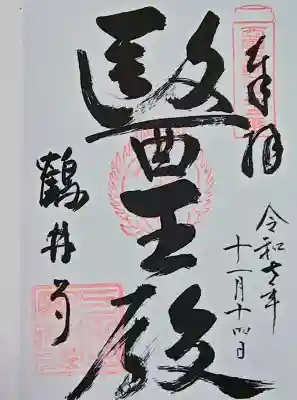 奉拝
醫王殿
鶴林寺
令和七年
十一月十四日